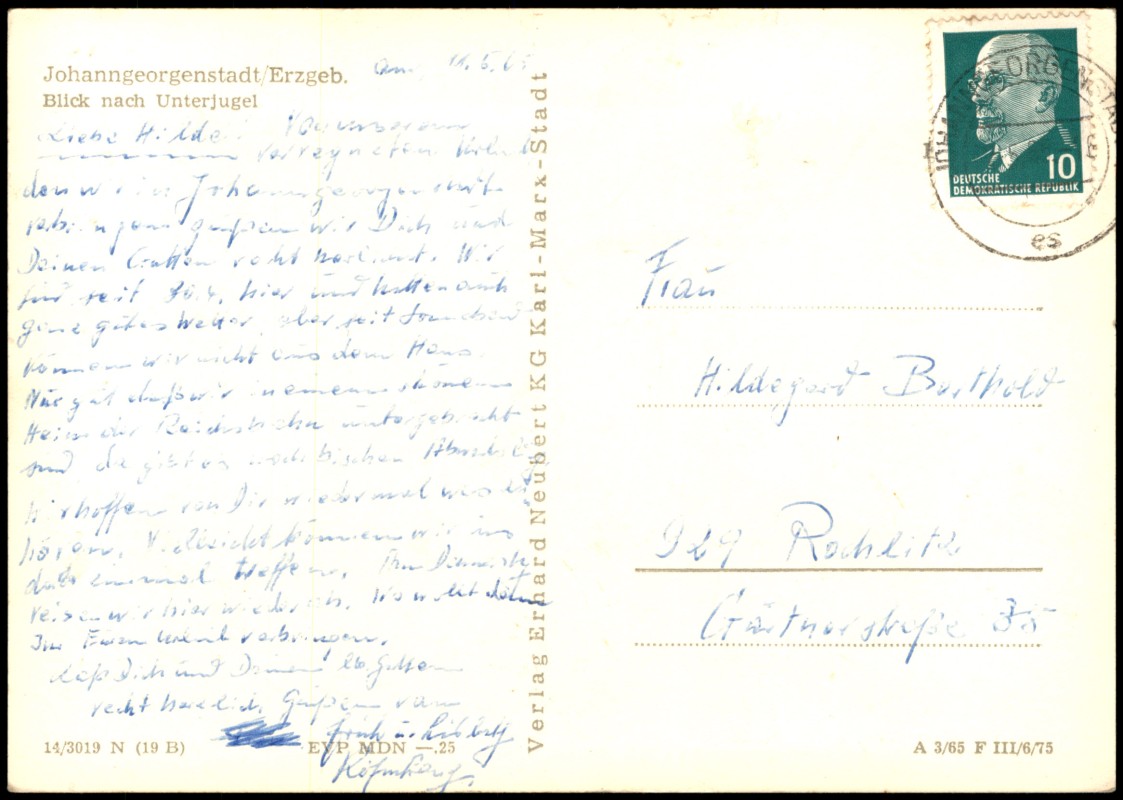 Johanngeorgenstadt/Erzgeb.
Blick nach Unterjugel
Liebe Hilde!
verregneten Urlaub
den wir in Johanngeorgenstadt
grüßen wir Dich und
Deinen Gatten recht herzlichst. Wir
sind seit 30.4. hier und hatten auch
ganz gutes Wetter, aber seit Sonnabend
können wir nicht aus dem Haus.
Nur gut daß wir in einem schönen
Heim der Reichsbahn untergebracht
sind da gibt es
Wir hoffen von Dir wieder mal was zu
hören. Vielleicht können wir uns
einmal treffen. Am Dienstag
reisen wir hier wieder ab. Wo wollt
Ihr Euren Urlaub verbringen.
Laß Dich und Deinen lb. Gatten
recht herzlich Grüßen von
14/3019 N (19 B)
EVP MDN —.25
Verlag Erhard Neubert KG Karl-Marx-Stadt
JOHANNGEORGENSTADT
es
10
DEUTSCHE
DEMOKRATISCHE REPUBLIK
Frau
Hildegard Berthold
929 Rochlitz
Gärtnerstraße 35
A 3/65 F III/6/75